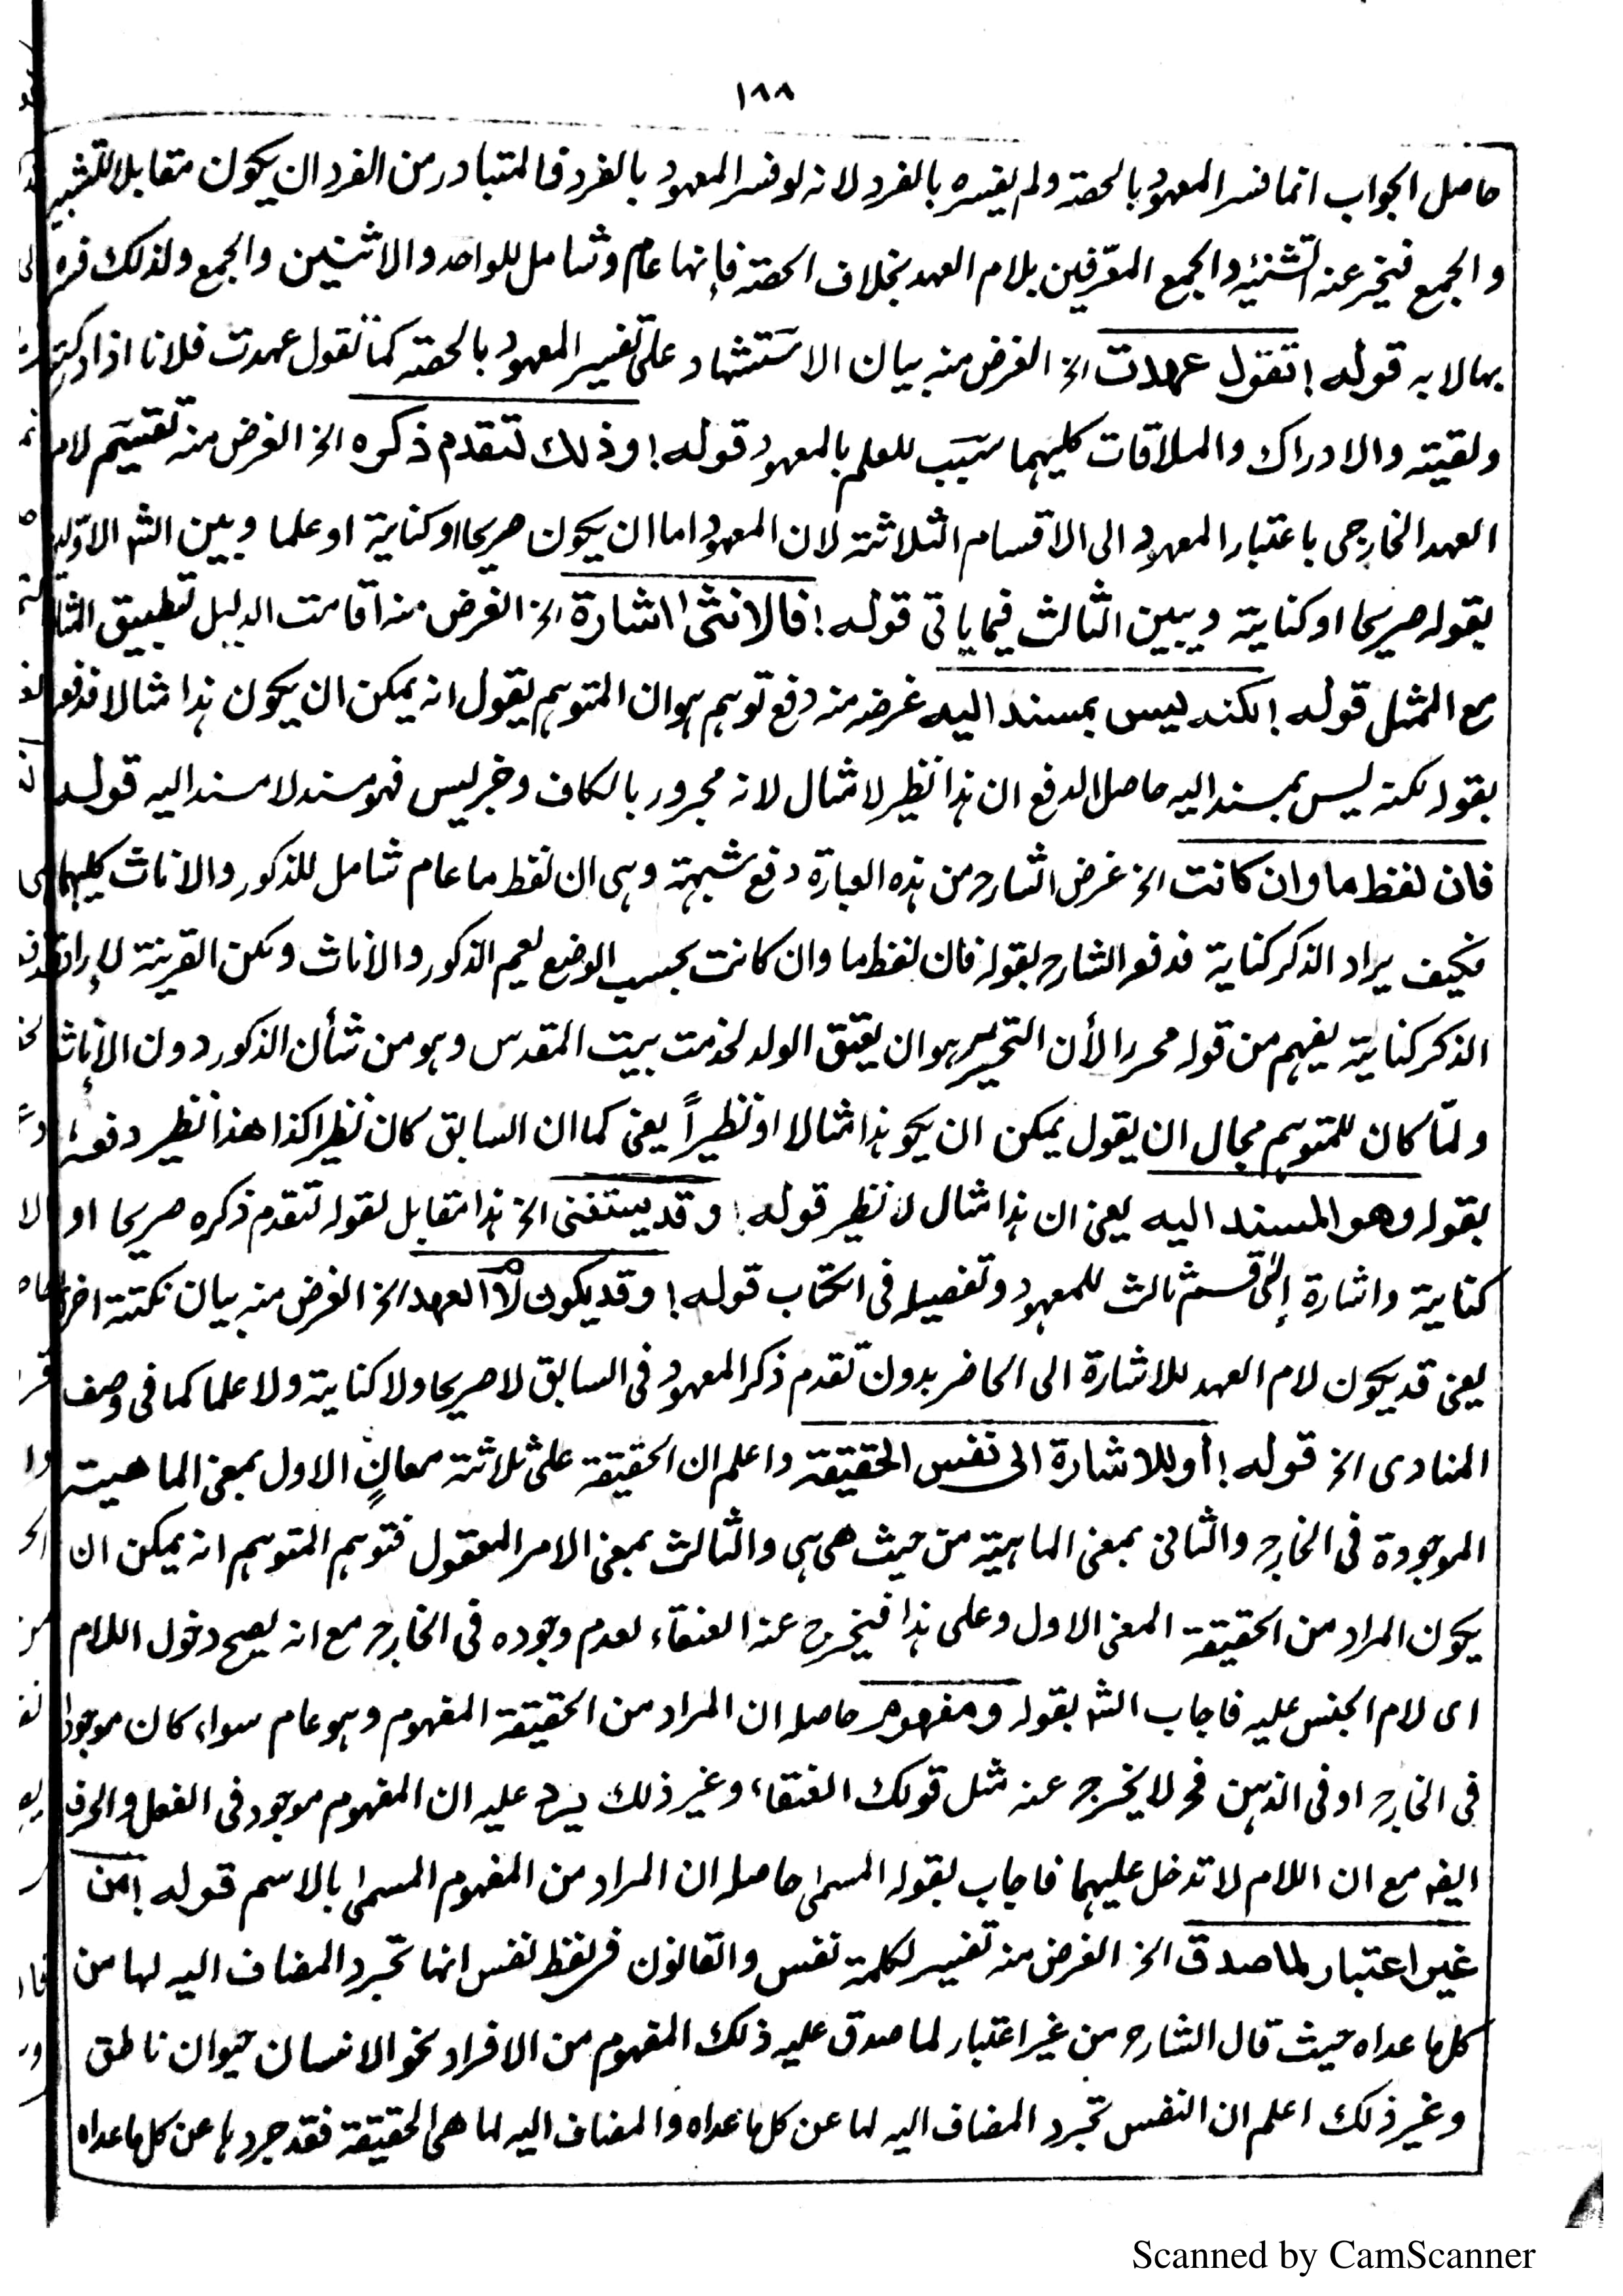 ١٨٨
حاصل الجواب انما فسر المعهود بالحصته ولم يفسره بالفرد لانه لو فسر المعهود بالفرد فالمتبادر من الفرد ان يكون مقابلا للتشنية
والجمع فيخرج عنه التشنية والجمع المعرفين بلام العهد بخلاف الحصته فإنها عام وشامل للواحد والاثنين والجمع ولذلك فسره
بها لا به قوله ! تقول عهدت الخ الغرض منه بيان الاستشهاد على تفسير المعهود بالحصته كما تقول عهدت فلانا اذا ادركته
ولقيته والادراك والملاقات كليهما سبب للعلم بالمعهود قوله ! وذلك لتقدم ذكره الخ الغرض منه تقسيم لام
العهد الخارجى باعتبار المعهود الى الاقسام الثلاثته لان المعهود اما ان يكون صريحا او كناية او علما وبين الشه الاولين
بقوله صريحا او كناية ويبين الثالث فيما ياتى قوله ! فالانثى اشارة الخ الغرض منه اقامت الدليل تطبيق المثال
مع الممثل قوله ! لكنه ليس بمسند اليه غرضه منه دفع توهم هو ان المتوهم يقول انه يمكن ان يكون هذا مثالا فدفعه
بقوله لكنه ليس بمسند اليه حاصل الدفع ان هذا نظير لا مثال لانه مجرور بالكاف وخبر ليس فهو مسند لا مسند اليه قوله
فان لفظ ما وان كانت الخ غرض الشارح من هذه العبارة دفع شبهة وهى ان لفظ ما عام شامل للذكور والاناث كليهما
فكيف يراد الذكر كناية فدفع الشارح بقوله فان لفظ ما وان كانت بحسب الوضع لعيم الذكور والاناث ولكن القرينة لإرادة
الذكر كناية يفهم من قوله محررا لأن التحرير هو ان يعتق الولد لخدمت بيت المقدس وهو من شأن الذكور دون الإناث
ولمّا كان للمتوهم مجال ان يقول يمكن ان يكو هذا مثالا او نظيراً يعنى كما ان السابق كان نظيرا كذا هذا نظير دفعه
بقوله وهو المسند اليه يعنى ان هذا مثال لا نظير قوله ! وقد يستغنى الخ هذا مقابل لقوله لتقدم ذكره صريحا او
كناية واشارة إلى قسم ثالث للمعهود وتفصيله فى الكتاب قوله ! وقد يكون لام العهد الخ الغرض منه بيان نكتته اخرى
يعنى قد يكون لام العهد للاشارة الى الحاضر بدون تقدم ذكر المعهود فى السابق لا صريحا ولا كناية ولا علما كما فى وصف
المنادى الخ قوله ! أو للاشارة الى نفس الحقيقة واعلم ان الحقيقة على ثلاثته معانٍ الاول بمعنى الماهيت
الموجودة فى الخارج والثانى بمعنى الماهية من حيث هى هى والثالث بمعنى الامر المعقول فتوهم المتوهم انه يمكن ان
يكون المراد من الحقيقة المعنى الاول وعلى هذا فيخرج عنه العنقاء لعدم وجوده فى الخارج مع انه يصح دخول اللام
اى لام الجنس عليه فاجاب الشه بقوله ومفهوم حاصله ان المراد من الحقيقة المفهوم وهو عام سواء كان موجودا
فى الخارج او فى الذهن فح لا يخرج عنه مثل قولك العنقاء وغير ذلك يرد عليه ان المفهوم موجود فى الفعل والحرف
ايضه مع ان اللام لا تدخل عليهما فاجاب بقوله المسمى حاصله ان المراد من المفهوم المسمى بالاسم قوله ! من
غير اعتبار لما صدق الخ الغرض منه تفسير لكلمة نفس والقانون فى لفظ نفس انها تجرد المضاف اليه لها من
كل ما عداه حيث قال الشارح من غير اعتبار لما صدق عليه ذلك المفهوم من الافراد نحو الانسان حيوان ناطق
وغير ذلك اعلم ان النفس تجرد المضاف اليه لها عن كل ما عداه والمضاف اليه لها هى الحقيقة فقد جردها عن كل ما عداه
Scanned by CamScanner